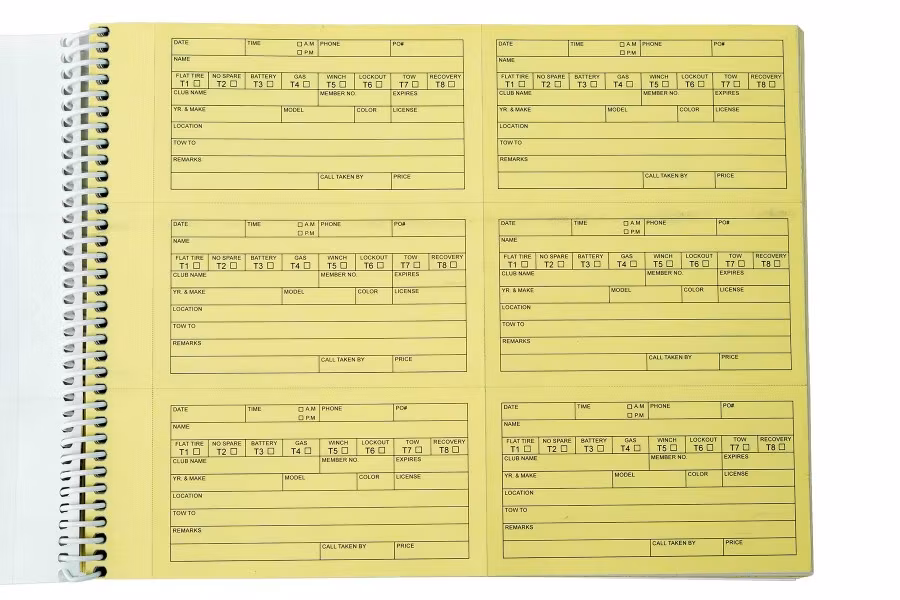 DATE TIME ☐ A.M PHONE PO#
☐ P.M
NAME
FLAT TIRE NO SPARE BATTERY GAS WINCH LOCKOUT TOW RECOVERY
T1 ☐ T2 ☐ T3 ☐ T4 ☐ T5 ☐ T6 ☐ T7 ☐ T8 ☐
CLUB NAME MEMBER NO. EXPIRES
YR. & MAKE MODEL COLOR LICENSE
LOCATION
TOW TO
REMARKS
CALL TAKEN BY PRICE
DATE TIME ☐ A.M PHONE PO#
☐ P.M
NAME
FLAT TIRE NO SPARE BATTERY GAS WINCH LOCKOUT TOW RECOVERY
T1 ☐ T2 ☐ T3 ☐ T4 ☐ T5 ☐ T6 ☐ T7 ☐ T8 ☐
CLUB NAME MEMBER NO. EXPIRES
YR. & MAKE MODEL COLOR LICENSE
LOCATION
TOW TO
REMARKS
CALL TAKEN BY PRICE
DATE TIME ☐ A.M PHONE PO#
☐ P.M
NAME
FLAT TIRE NO SPARE BATTERY GAS WINCH LOCKOUT TOW RECOVERY
T1 ☐ T2 ☐ T3 ☐ T4 ☐ T5 ☐ T6 ☐ T7 ☐ T8 ☐
CLUB NAME MEMBER NO. EXPIRES
YR. & MAKE MODEL COLOR LICENSE
LOCATION
TOW TO
REMARKS
CALL TAKEN BY PRICE
DATE TIME ☐ A.M PHONE PO#
☐ P.M
NAME
FLAT TIRE NO SPARE BATTERY GAS WINCH LOCKOUT TOW RECOVERY
T1 ☐ T2 ☐ T3 ☐ T4 ☐ T5 ☐ T6 ☐ T7 ☐ T8 ☐
CLUB NAME MEMBER NO. EXPIRES
YR. & MAKE MODEL COLOR LICENSE
LOCATION
TOW TO
REMARKS
CALL TAKEN BY PRICE
DATE TIME ☐ A.M PHONE PO#
☐ P.M
NAME
FLAT TIRE NO SPARE BATTERY GAS WINCH LOCKOUT TOW RECOVERY
T1 ☐ T2 ☐ T3 ☐ T4 ☐ T5 ☐ T6 ☐ T7 ☐ T8 ☐
CLUB NAME MEMBER NO. EXPIRES
YR. & MAKE MODEL COLOR LICENSE
LOCATION
TOW TO
REMARKS
CALL TAKEN BY PRICE
DATE TIME ☐ A.M PHONE PO#
☐ P.M
NAME
FLAT TIRE NO SPARE BATTERY GAS WINCH LOCKOUT TOW RECOVERY
T1 ☐ T2 ☐ T3 ☐ T4 ☐ T5 ☐ T6 ☐ T7 ☐ T8 ☐
CLUB NAME MEMBER NO. EXPIRES
YR. & MAKE MODEL COLOR LICENSE
LOCATION
TOW TO
REMARKS
CALL TAKEN BY PRICE